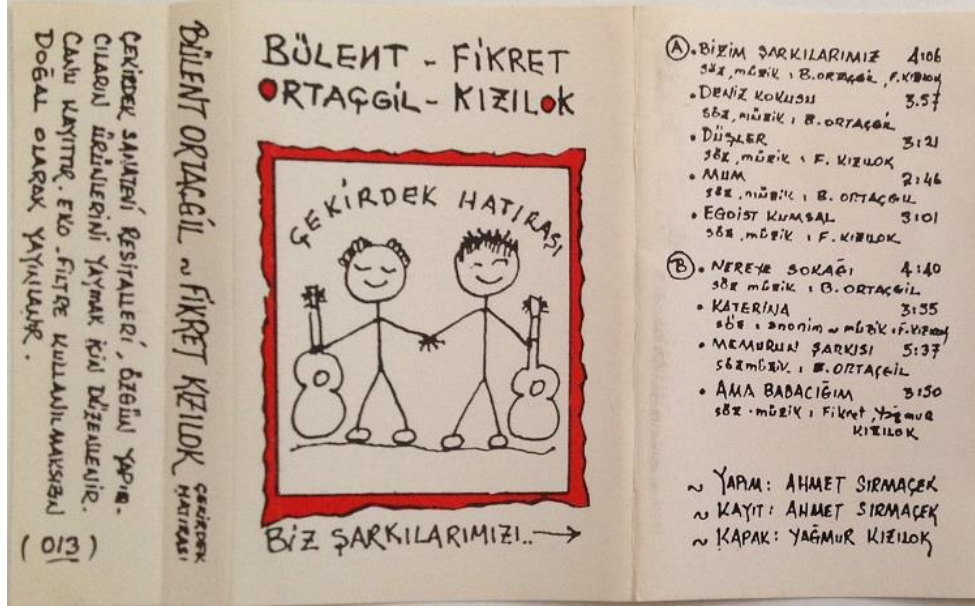 ÇEKİRDEK SANATEVİ RESİTALLERİ, ÖZGÜN YAPIT-
CILARIN ÜRÜNLERİNİ YAYMAK İÇİN DÜZENLENİR.
CANLI KAYITTIR. EKO-FİLTRE KULLANILMAKSIZIN
DOĞAL OLARAK YAYINLANIR.
(013)
BÜLENT ORTAÇGİL ~ FİKRET KIZILOK
ÇEKİRDEK
HATIRASI
BÜLENT - FİKRET
ORTAÇGİL - KIZILOK
ÇEKİRDEK HATIRASI
BİZ ŞARKILARIMIZI..→
A • BİZİM ŞARKILARIMIZ 4:06
söz, müzik : B.ORTAÇGİL, F.KIZILOK
• DENİZ KOKUSU 3:57
söz, müzik : B. ORTAÇGİL
• DÜŞLER 3:21
söz, müzik : F. KIZILOK
• MUM 2:46
söz, müzik : B. ORTAÇGİL
• EGOİST KUMSAL 3:01
söz, müzik : F. KIZILOK
B • NEREYE SOKAĞI 4:40
söz müzik : B. ORTAÇGİL
• KATERİNA 3:55
söz : anonim ~ müzik : F.KIZILOK
• MEMURUN ŞARKISI 5:37
söz müzik : B. ORTAÇGİL
• AMA BABACIĞIM 3:50
söz - müzik : Fikret, Yağmur
KIZILOK
~ YAPIM: AHMET SIRMAÇEK
~ KAYIT: AHMET SIRMAÇEK
~ KAPAK: YAĞMUR KIZILOK